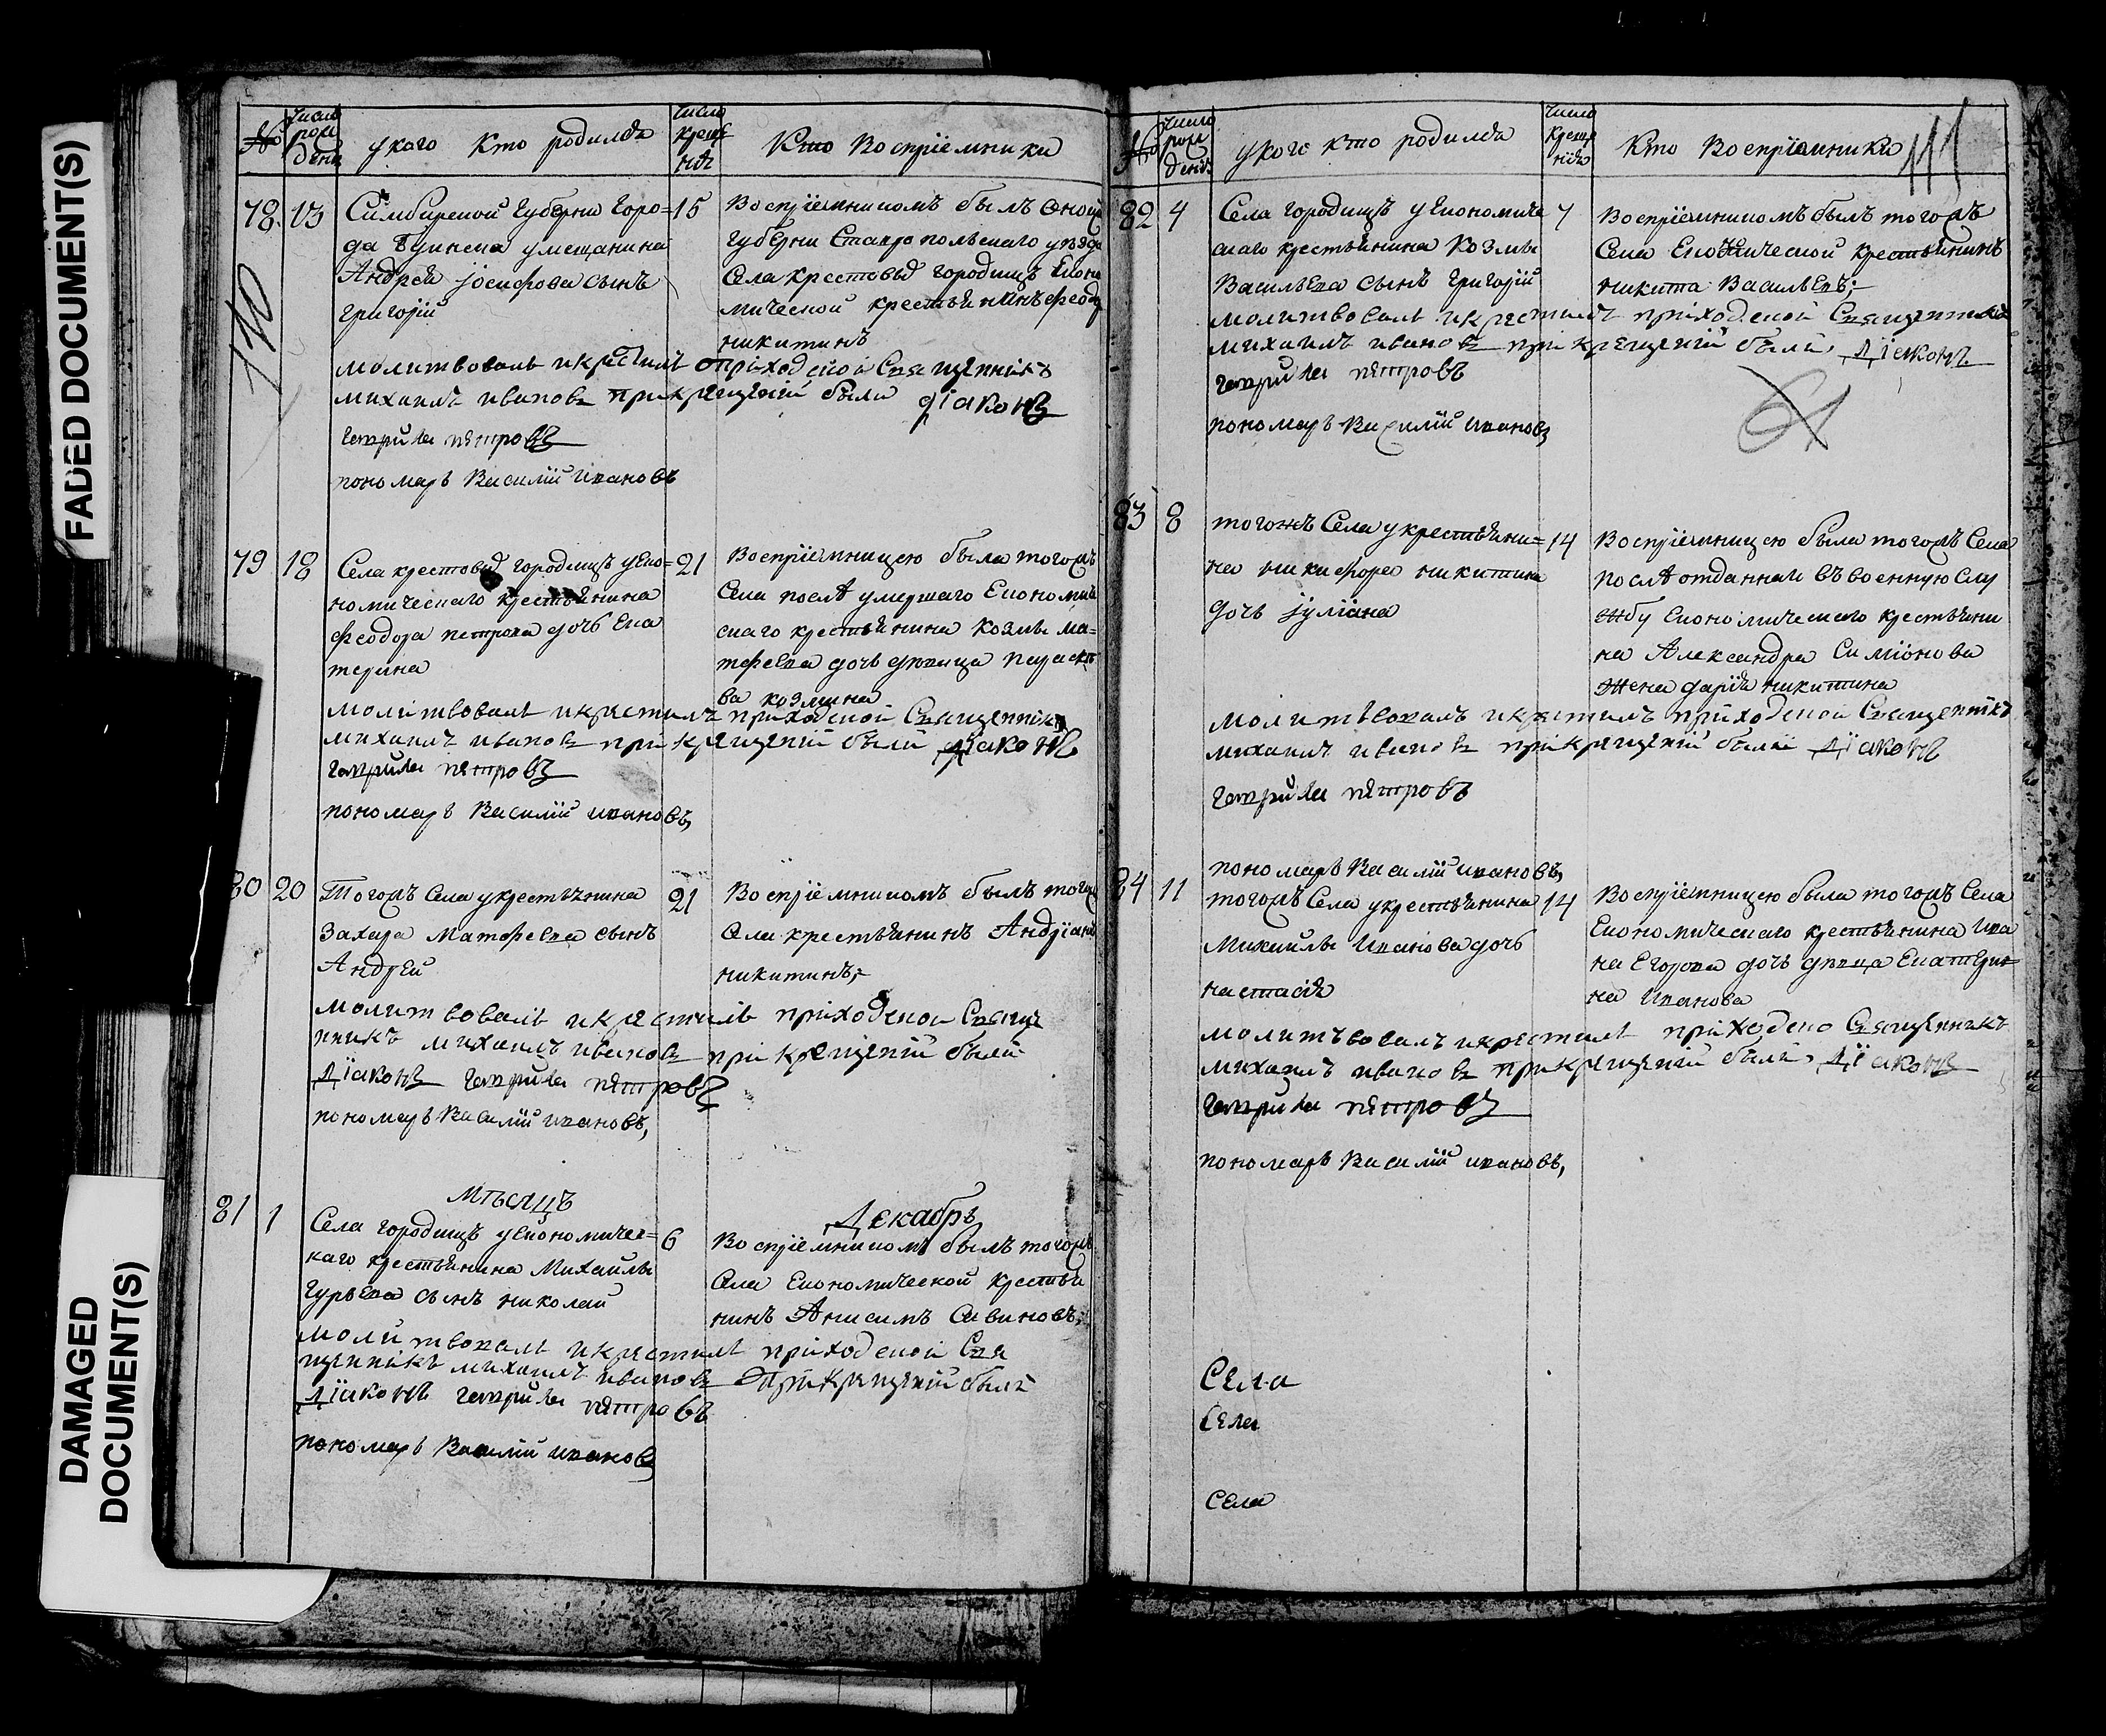 FADED DOCUMENT(S)
DAMAGED
DOCUMENT(S)
№
число
рож
дени
у кого Кто родился
число
креще
нія
Кто Воспріемники
78
13
Симбирской Губерніи Горо=
да Буинска у мещанина
Андрея Іосифова сынъ
григорій
15
Воспріемникомъ былъ оной
Губерни Ставропольскаго уѣзда
Села крестовыд городищъ Еконо
мической крестьянинъ феодр
никитинъ
молитвовалъ и крестилъ приходской Священникъ
михаилъ ивановъ при крещеніи были діаконъ
гаврила петровъ
пономарь Василій ивановъ
110
79
18
Села крестовыд городищъ у Еко=
номическаго крестьянина
феодора петрова дочь Ека
терина
21
Воспріемницею была тогожъ
Села послѣ умершаго Економи
скаго крестьянина Козмы ма=
тфеева дочь девица параске
ва козмина
молитвовалъ и крестилъ приходской Священникъ
михаилъ ивановъ при крещеніи были діаконъ
гаврила петровъ
пономарь Василій ивановъ,
80
20
Тогожъ Села у крестьянина
Захара Матфеева сынъ
Андрей
21
Воспріемникомъ былъ тогож
Села крестьянинъ Андріанъ
никитинъ;
молитвовалъ и крестилъ приходской Свяще
нникъ михаилъ ивановъ при крещеніи были
діаконъ гаврила петровъ
пономарь Василій ивановъ,
мѣсяцъ
Декабрь
81
1
Села городищъ у Економичес=
каго крестьянина Михаилы
Гурьева сынъ николай
6
Воспріемникомъ былъ тогожъ
Села Економической крестья
нинъ Анисимъ Савиновъ;
молитвовалъ и крестилъ приходской Свя
щенникъ михаилъ ивановъ при крещеніи были
діаконъ гаврила петровъ
пономарь Василій ивановъ
№
число
рож
дени
у кого кто родился
число
креще
нія
Кто Воспріемники
111
82
4
Села городищъ у Економиче
скаго крестьянина Козмы
Васильева сынъ Григорій
7
Воспріемникомъ былъ тогожъ
Села Економической крестьянинъ
никита Васильевъ;
молитвовалъ и крестилъ приходской Священникъ
михаилъ ивановъ при крещеніи были, діаконъ
гаврила петровъ
пономарь Василій ивановъ
83
8
тогожъ Села у крестьяни=
на никифора никитина
дочь іуліана
14
Воспріемницею была тогожъ Села
послѣ отданнаи въ военную Слу
жбу Економическаго крестьяни
на Александра Симіонова
жена дарія никитина
молитвовалъ и крестилъ приходской Священникъ
михаилъ ивановъ при крещеніи были діаконъ
гаврила петровъ
пономарь Василій ивановъ,
84
11
тогожъ Села у крестьянина
Михаилы Иванова дочь
настасія
14
Воспріемницею была тогожъ Села
Економическаго крестьянина Ива
на Егорова дочь девица Екатери
на Иванова
молитвовалъ и крестилъ приходско Священникъ
михаилъ ивановъ при крещеніи были, діаконъ
гаврила петровъ
пономарь Василій ивановъ,
Села
Села
Села